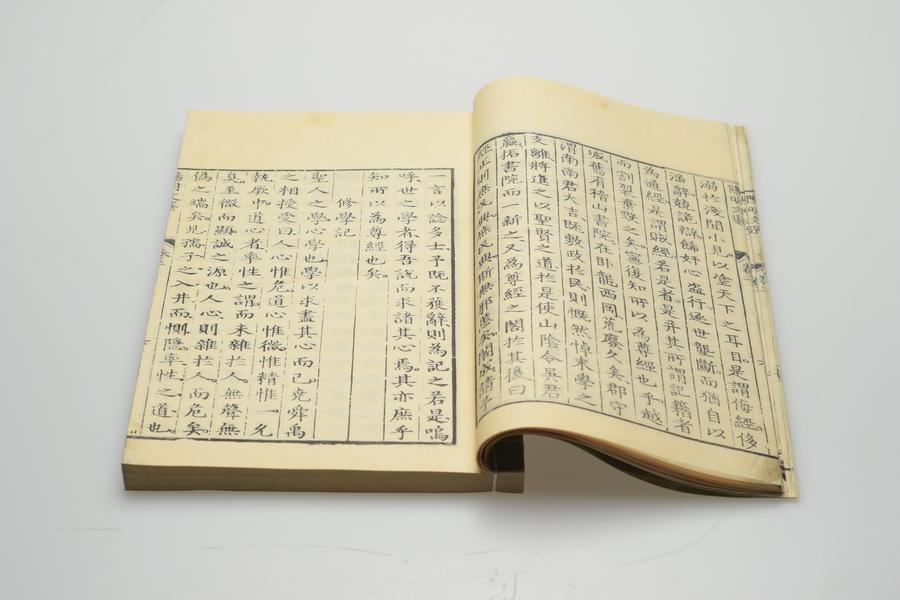 溺於淺聞小見以塗天下之耳目是謂侮經侈
淫辭競詭辯飾奸心盜行逐世壟斷而猶自以
為通經是謂賊經若是者是并其所謂記籍者
而割裂棄毀之矣寧復知所以為尊經也乎越
城舊有稽山書院在卧龍西岡荒廢久矣郡守
渭南南君大吉既敷政於民則慨然悼末學之
支離將進之以聖賢之道於是使山陰令吳君
瀛拓書院而一新之又為尊經之閣於其後曰
經正則庶民興庶民興斯無邪慝矣閣成請予
一言以諗多士予既不獲辭則為記之若是嗚
呼世之學者得吾說而求諸其心焉其亦庶乎
知所以為尊經也矣
修學記
聖人之學心學也學以求盡其心而已堯舜禹
之相授受曰人心惟危道心惟微惟精惟一允
執厥中道心者率性之謂而未雜於人無聲無
臭至微而顯誠之源也人心則雜於人而危矣
偽之端矣見孺子之入井而惻隱率性之道也